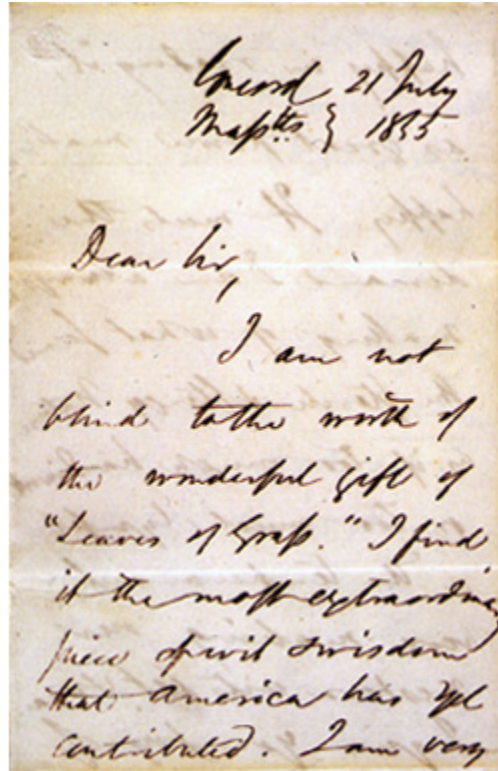 Concord 21 July
Massts } 1855
Dear Sir,
I am not
blind to the worth of
the wonderful gift of
"Leaves of Grass." I find
it the most extraordinary
piece of wit & wisdom
that America has yet
contributed. I am very